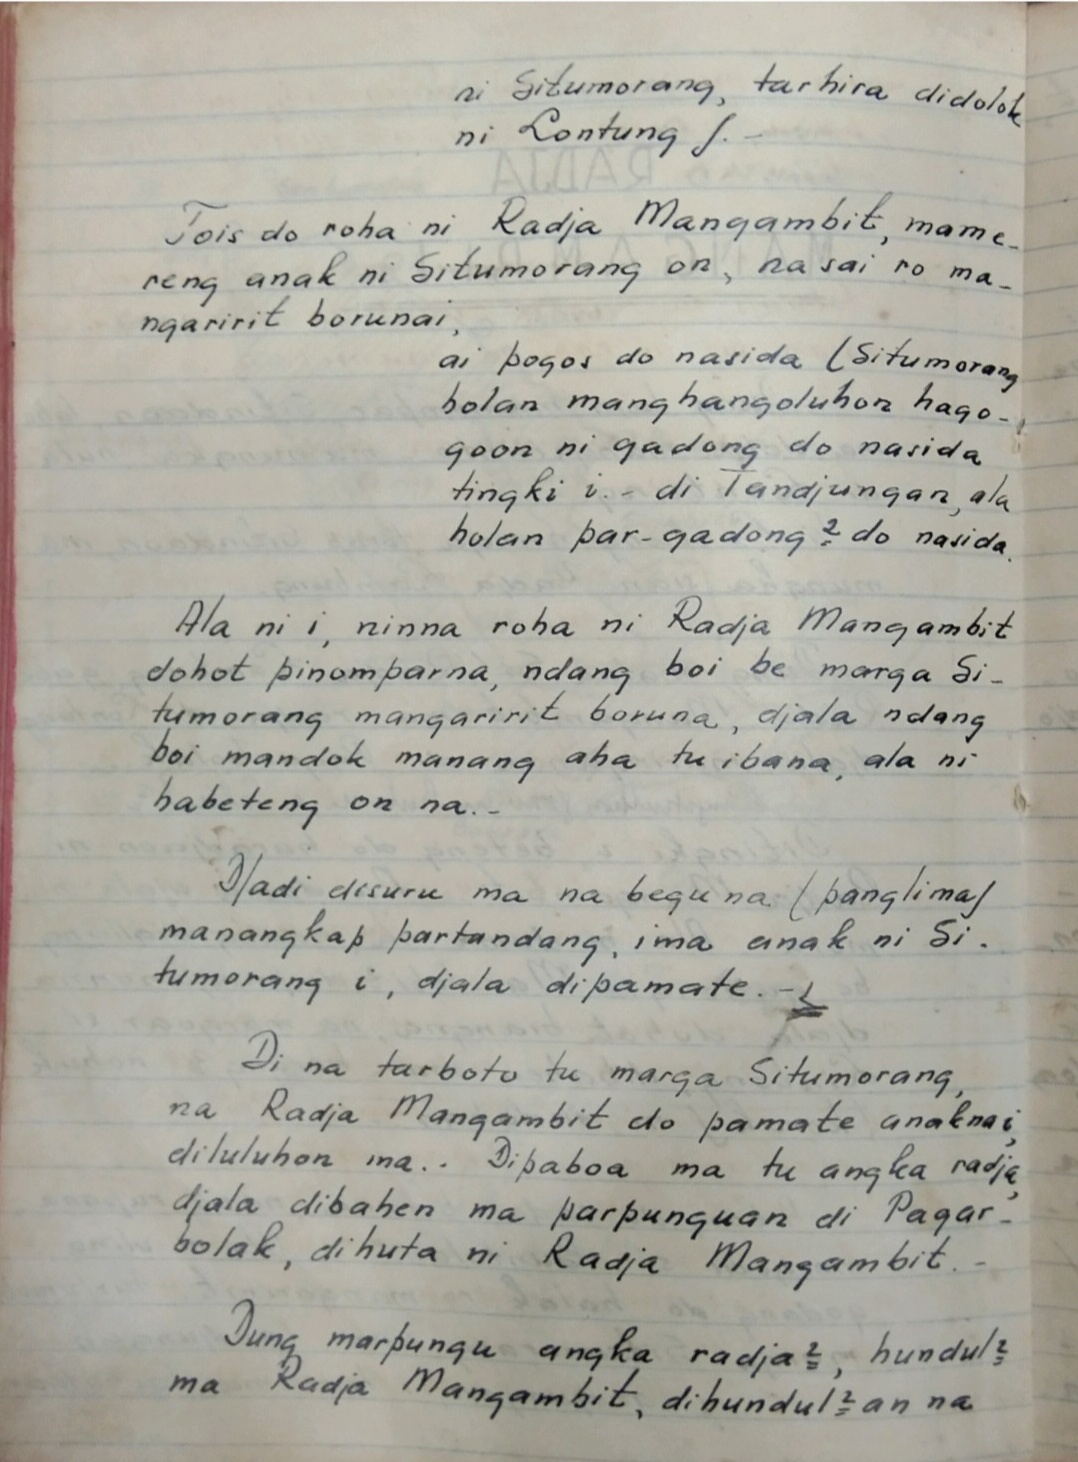 ni Situmorang, tarhira didolok
ni Lontung /. -
Tois do roha ni Radja Mangambit, mame-
reng anak ni Situmorang on, na sai ro ma-
ngaririt borunai,
ai pogos do nasida (Situmorang
holan manghangoluhon hago-
goon ni gadong do nasida
tingki i. - di Tandjungan, ala
holan par-gadong2 do nasida.
Ala ni i, ninna roha ni Radja Mangambit
dohot pinomparna, ndang boi be marga Si-
tumorang mangaririt boruna, djala ndang
boi mandok manang aha tu ibana, ala ni
habeteng on na. -
Djadi disuru ma na begu na (panglima)
manangkap partandang, ima anak ni Si-
tumorang i, djala dipamate. -
Di na tarboto tu marga Situmorang,
na Radja Mangambit do pamate anaknai,
diluluhon ma. - Dipaboa ma tu angka radja,
djala dibahen ma parpunguan di Pagar-
bolak, dihuta ni Radja Mangambit. -
Dung marpungu angka radja2, hundul2
ma Radja Mangambit, dihundul2an na